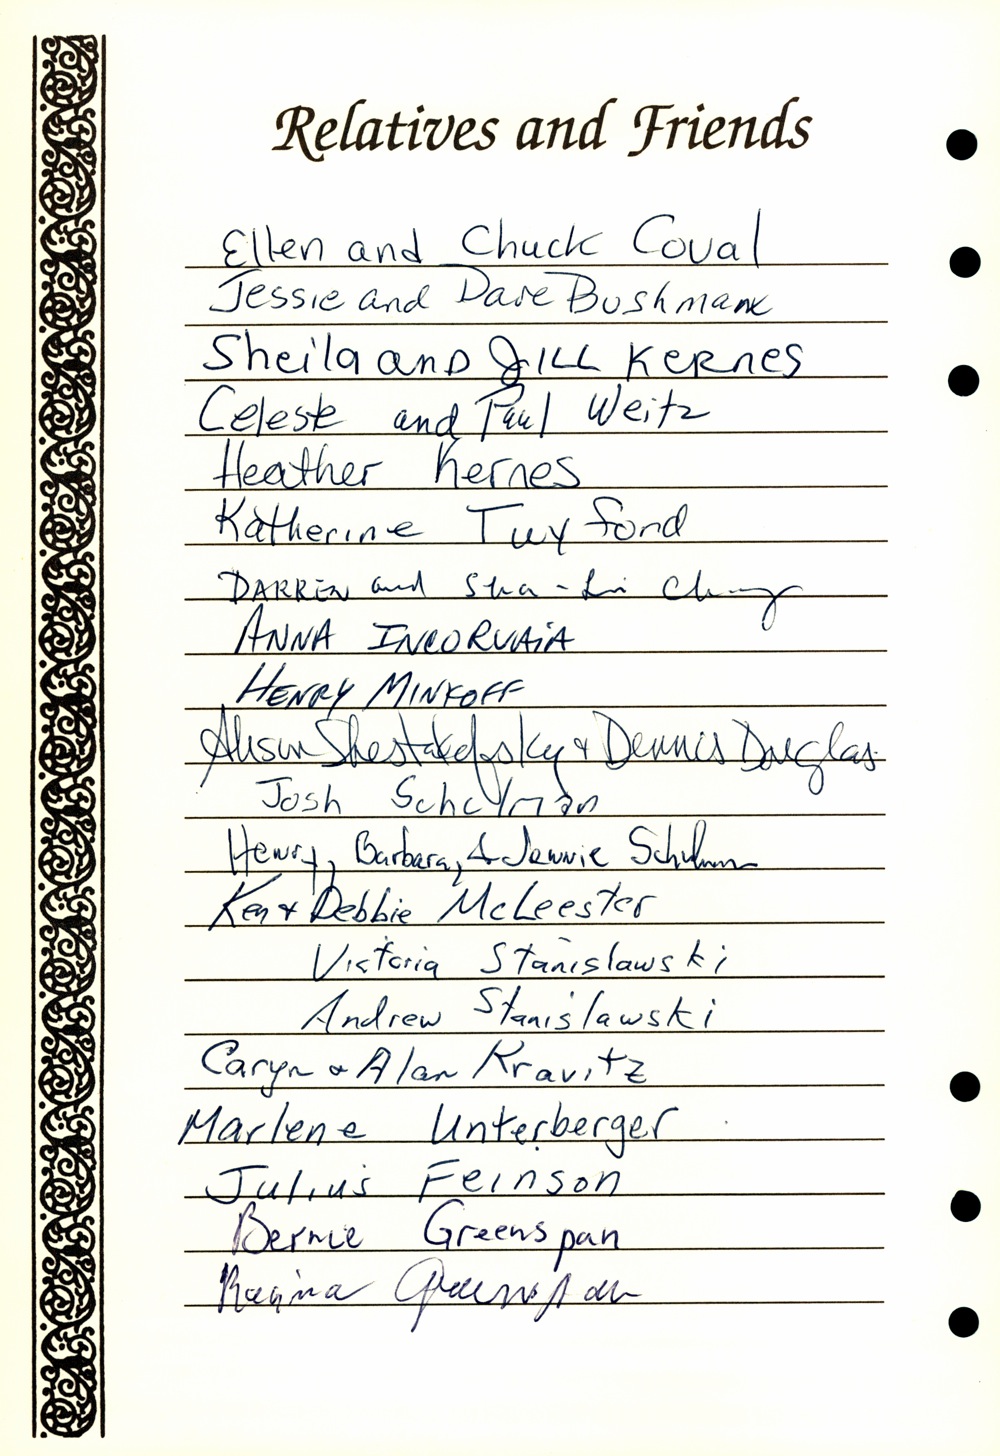 Relatives and Friends
Ellen and Chuck Coval
Jessie and Dave Bushmank
Sheila and Jill Kernes
Celeste and Paul Weitz
Heather Kernes
Katherine Twyford
DARREN and Sha-Lin Chung
ANNA INCORVAIA
HENRY MINKOFF
Alison Shestakofsky & Dennis Douglas
Josh Schulman
Henry, Barbara, & Jennie Schulman
Ken & Debbie McLeester
Victoria Stanislawski
Andrew Stanislawski
Caryn & Alan Kravitz
Marlene Unterberger
Julius Feinson
Bernie Greenspan
Regina Greenspan